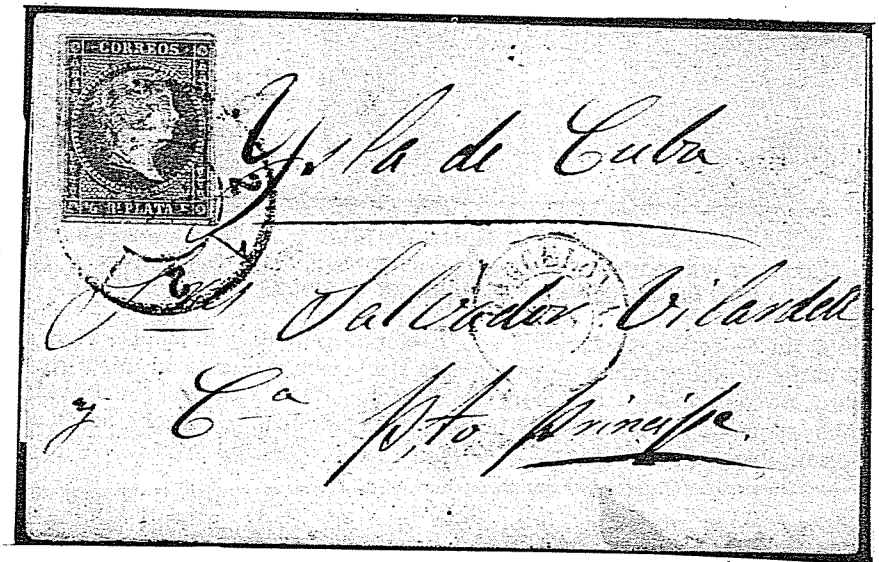 CORREOS
½ Rl PLATA F
Ysla de Cuba
Sres Salvador Vilardell
y Cª pto principe.